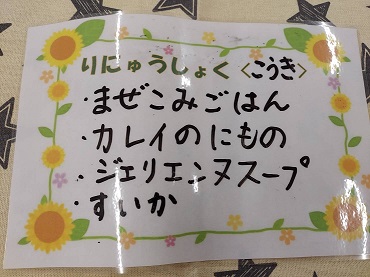 りにゅうしょく〈こうき〉
・まぜこみごはん
・カレイのにもの
・ジェリエンヌスープ
・すいか